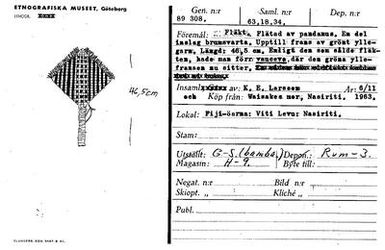 ETNOGRAFISKA MUSEET, Göteborg
46,5cm
Gen. n:r
89 308,
Saml. n:r
63,18.34,
Dep. n:r
Föremål: Fläkt. Flätad av pandanus, En del
inslag brunsvarta. Upptill frans av grönt yllegarn,
Längd: 46,5 cm, Enligt den som sålde fläkten,
hade man förr där den gröna yllefransen
nu sitter,
Insaml av K. E. Larsson År: 6/11
och Köp från: Waisakes mor, Nasiriti. 1963,
Lokal: Fiji-öarna: Viti Levu: Nasiriti.
Stam:
Utställt: G-S. (bambu) Depon: Rum-3.
Magasin: H-9. Byte till:
Negat. n:r Bild n:r
Skiopt. „ Kliché „
Publ.